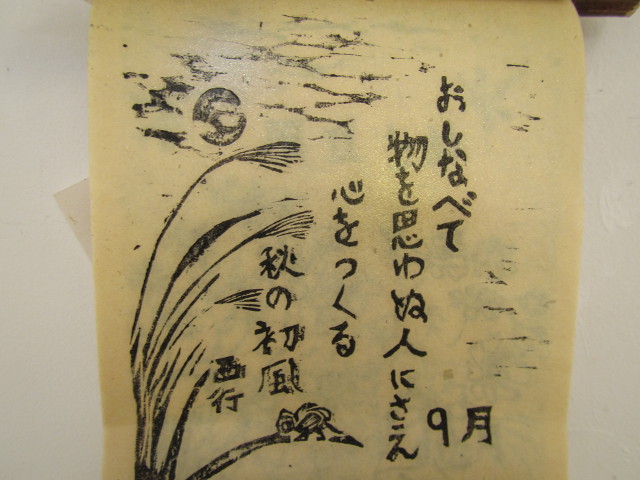 おしなべて
物を思わぬ人にさえ
心をつくる
秋の初風
西行
9月